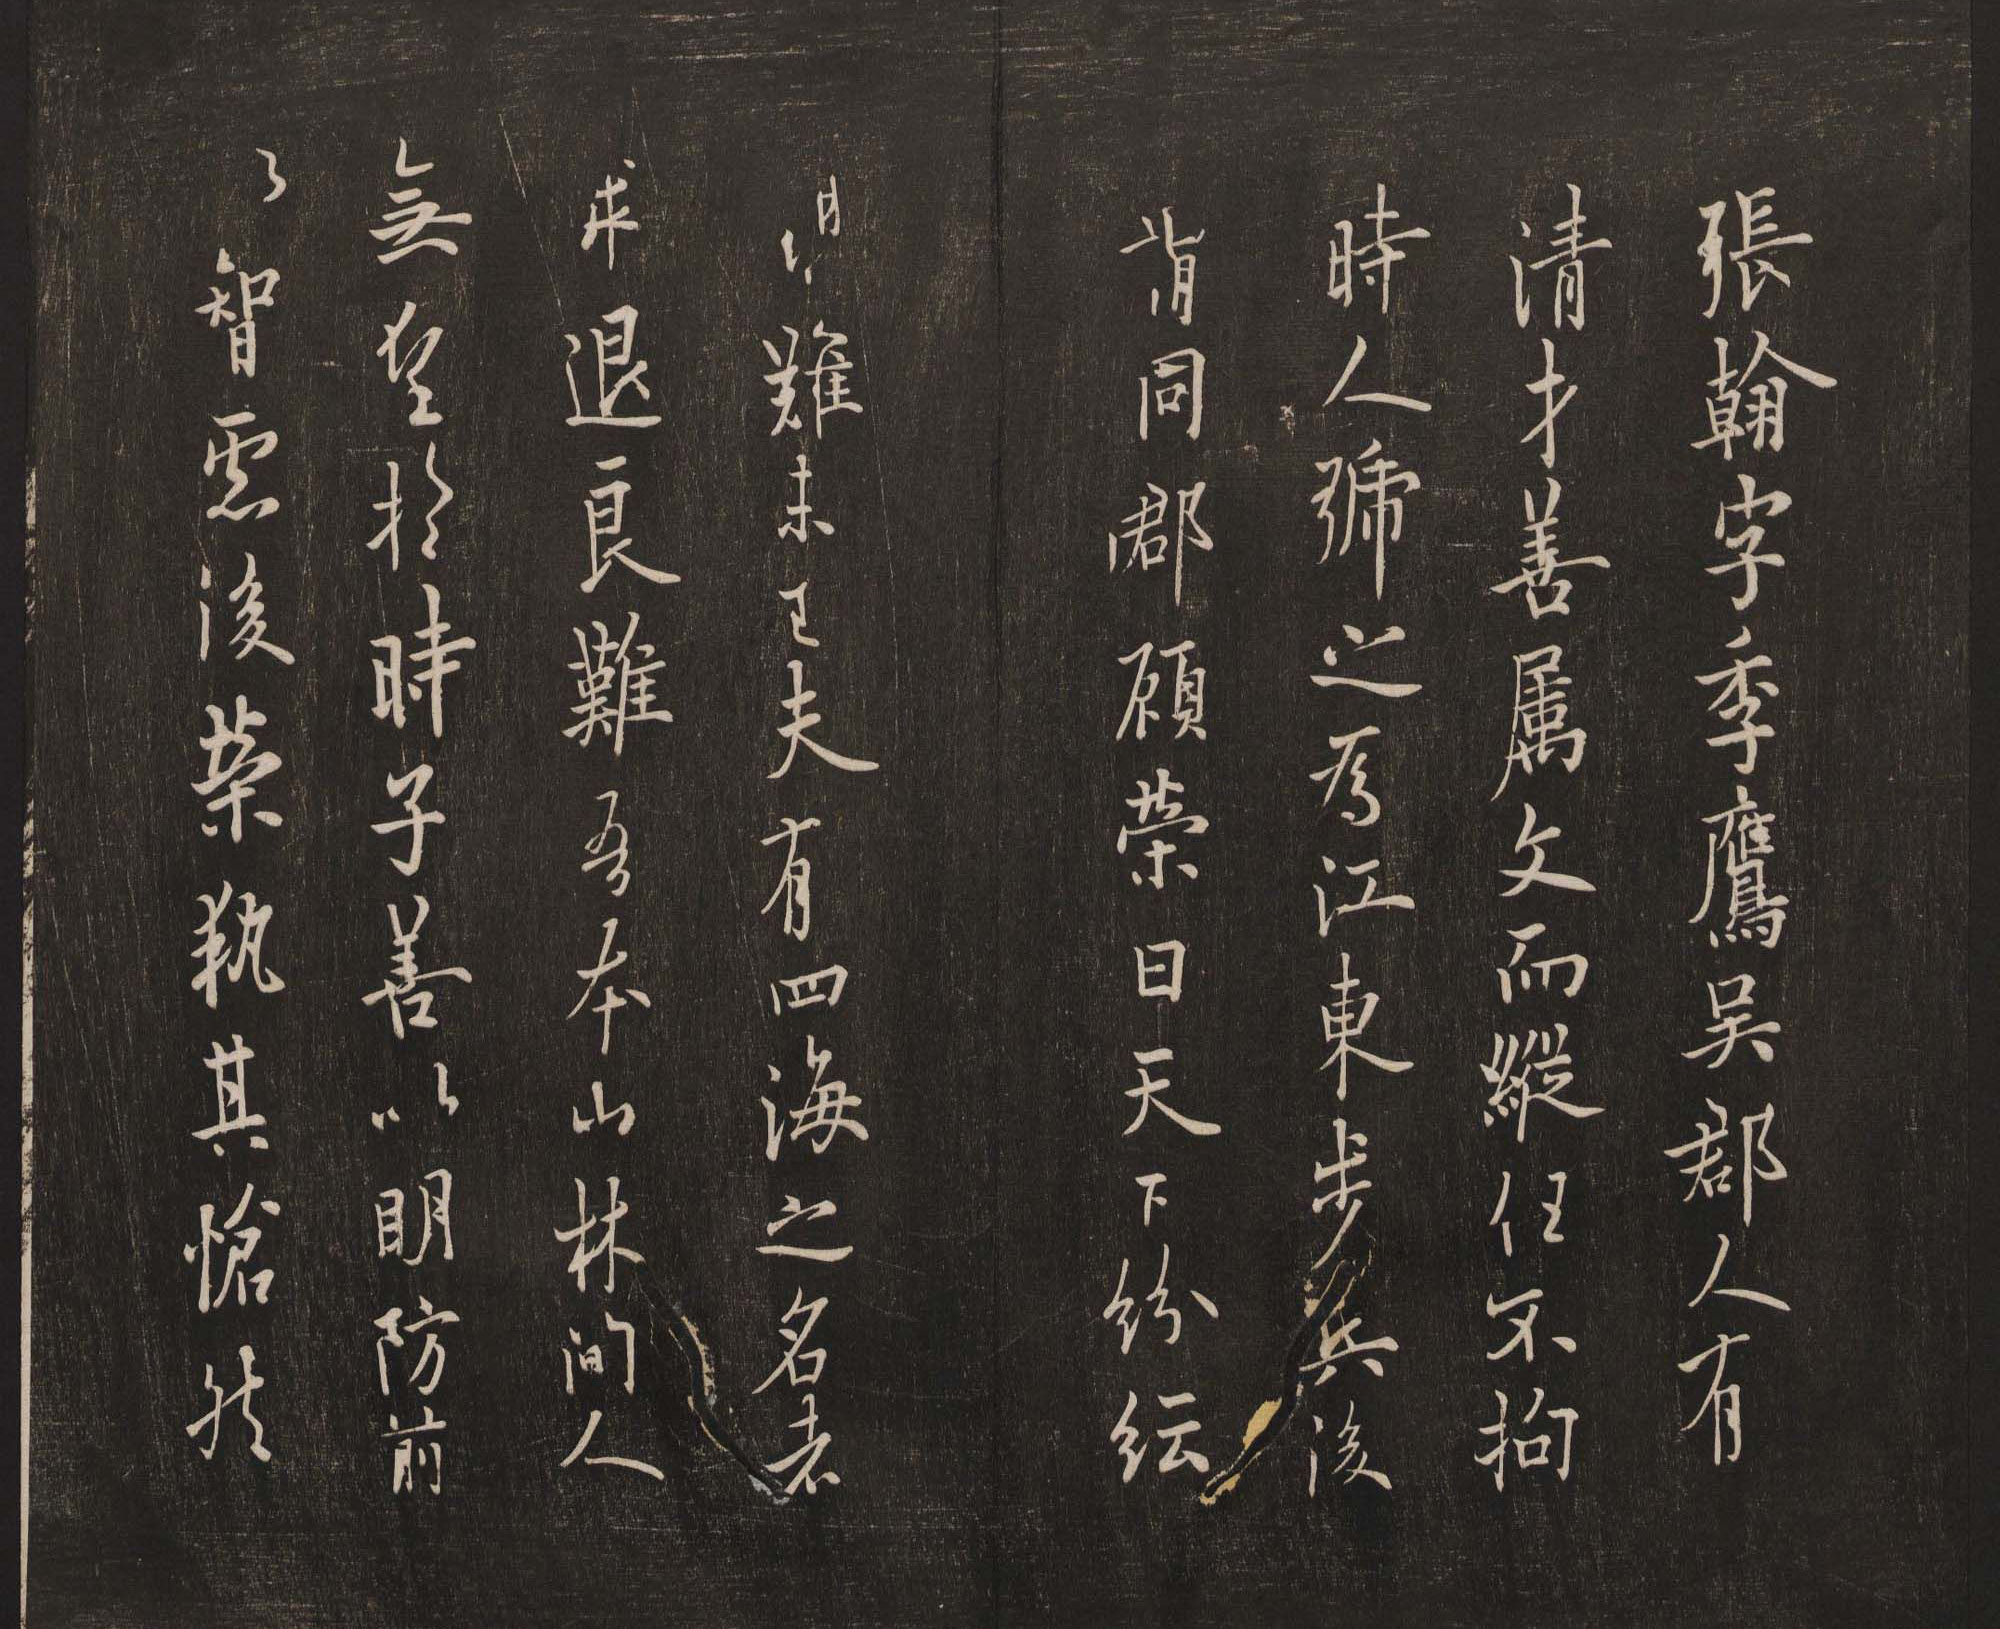 張翰字季鷹吳郡人有
清才善属文而縱任不拘
時人號之為江東步兵後
同郡顧榮曰天下紛紜
難未已夫有四海之名者
求退良難吾本山林間人
無望於時子善以明防前
以智慮後榮執其愴然